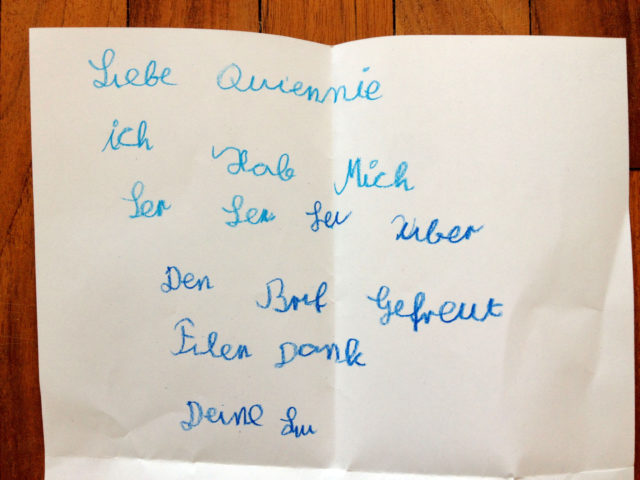 Liebe Quiennie
ich Hab Mich
Ser Ser Ser Über
Den Brif Gefreut
Filen Dank
Deine Lu